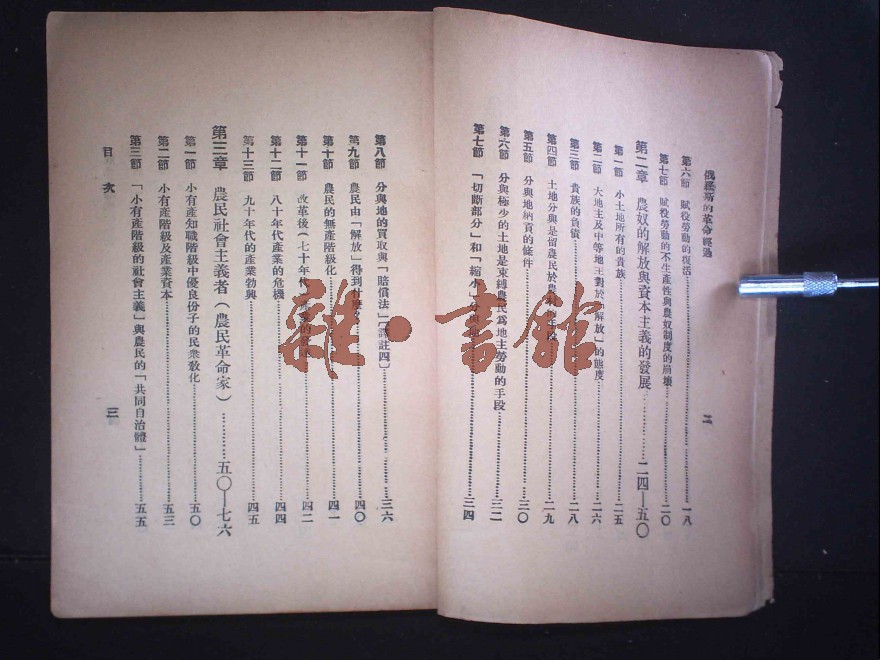 俄羅斯的革命經過
第六節 賦役勞動的復活……一八
第七節 賦役勞動的不生產性與農奴制度的崩壞……二〇
第二章 農奴的解放與資本主義的發展……二四—五〇
第一節 小土地所有的貴族……二五
第二節 大地主及中等地主對於「解放」的態度……二六
第三節 貴族的負債……二八
第四節 土地分與是留農民於農村的手段……二九
第五節 分與地納貢的條件……三〇
第六節 分與極少的土地是束縛農民爲地主勞動的手段……三二
第七節 「切斷部分」和「縮小」……三四
二
第八節 分與地的買取與「賠償法」〔譯註四〕……三六
第九節 農民由「解放」得到什麼?……四〇
第十節 農民的無產階級化……四一
第十一節 改革後(七十年代)……四二
第十二節 八十年代產業的危機……四四
第十三節 九十年代的產業勃興……四五
第三章 農民社會主義者(農民革命家)……五〇—七六
第一節 小有產知識階級中優良份子的民衆教化……五〇
第二節 小有產階級及產業資本……五三
第三節 「小有產階級的社會主義」與農民的「共同自治體」……五五
目次
三
雜·書館